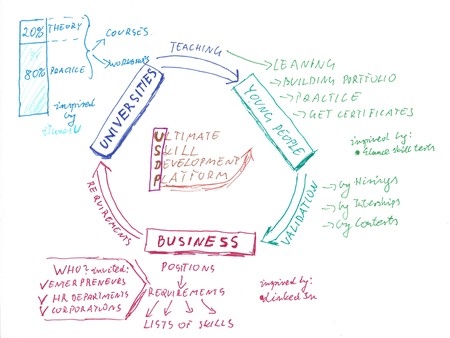 20%
THEORY
80%
PRACTICE
inspired
by
COURSES
WORKSHOPS
UNIVERSITIES
TEACHING
YOUNG PEOPLE
LEANING
BUILDING PORTFOLIO
PRACTICE
GET CERTIFICATES
inspired by:
skill tests
ULTIMATE
SKILL
DEVELOPMENT
PLATFORM
VALIDATION
by Hirings
by Interships
by Contests
REQUIREMENTS
BUSINESS
WHO? invited:
EMERPRENEURS
HR DEPARTMENTS
CORPORATIONS
POSITIONS
REQUIREMENTS
LISTS OF SKILLS
inspired by:
Linked In